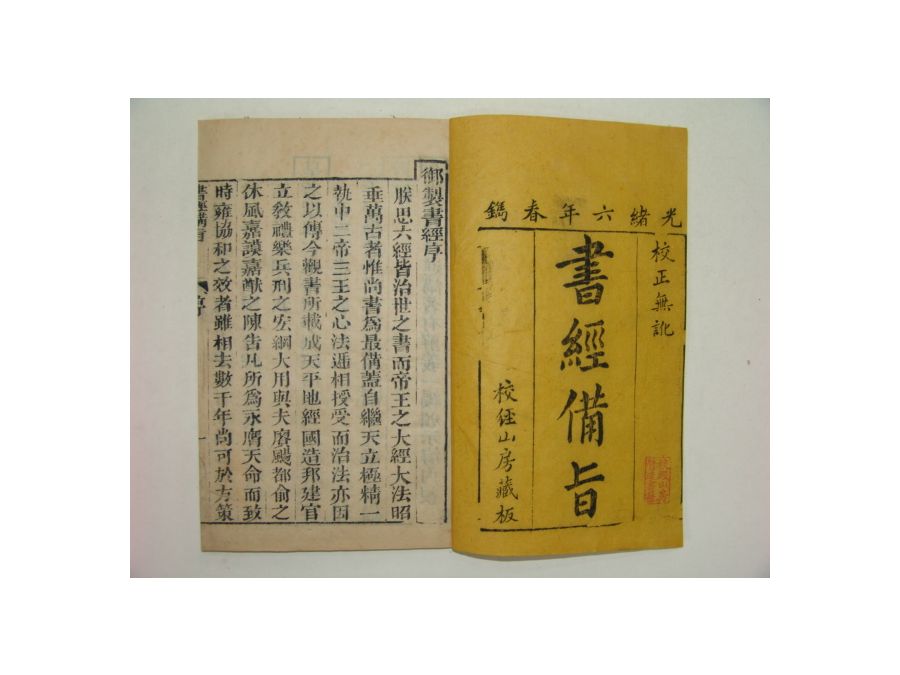 光緒六年春鐫
校正無訛
書經備旨
校經山房藏板
御製書經序
朕思六經皆治世之書而帝王之大經大法昭
垂萬古者惟尚書爲最備蓋自繼天立極精一
執中二帝三王之心法遞相授受而治法亦因
之以傳今觀書所載成天平地經國造邦建官
立敎禮樂兵刑之宏綱大用與夫賡颺都俞之
休風嘉謨嘉猷之陳告凡所爲永膺天命而致
時雍協和之效者雖相去數千年尚可於方策
書經備旨